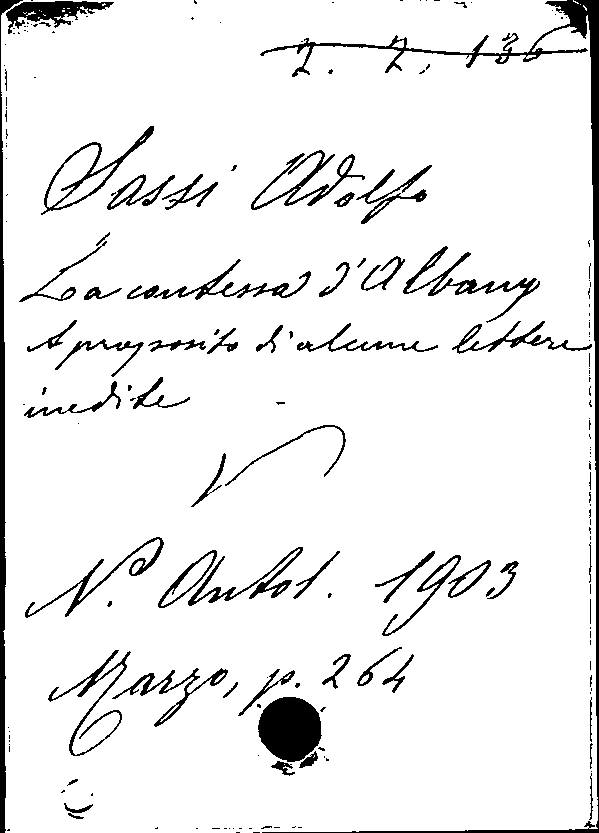 2. 2. 136
Sassi Adolfo
La contessa d'Albany
A proposito di alcune lettere
inedite
N.a Antol. 1903
Marzo, p. 264